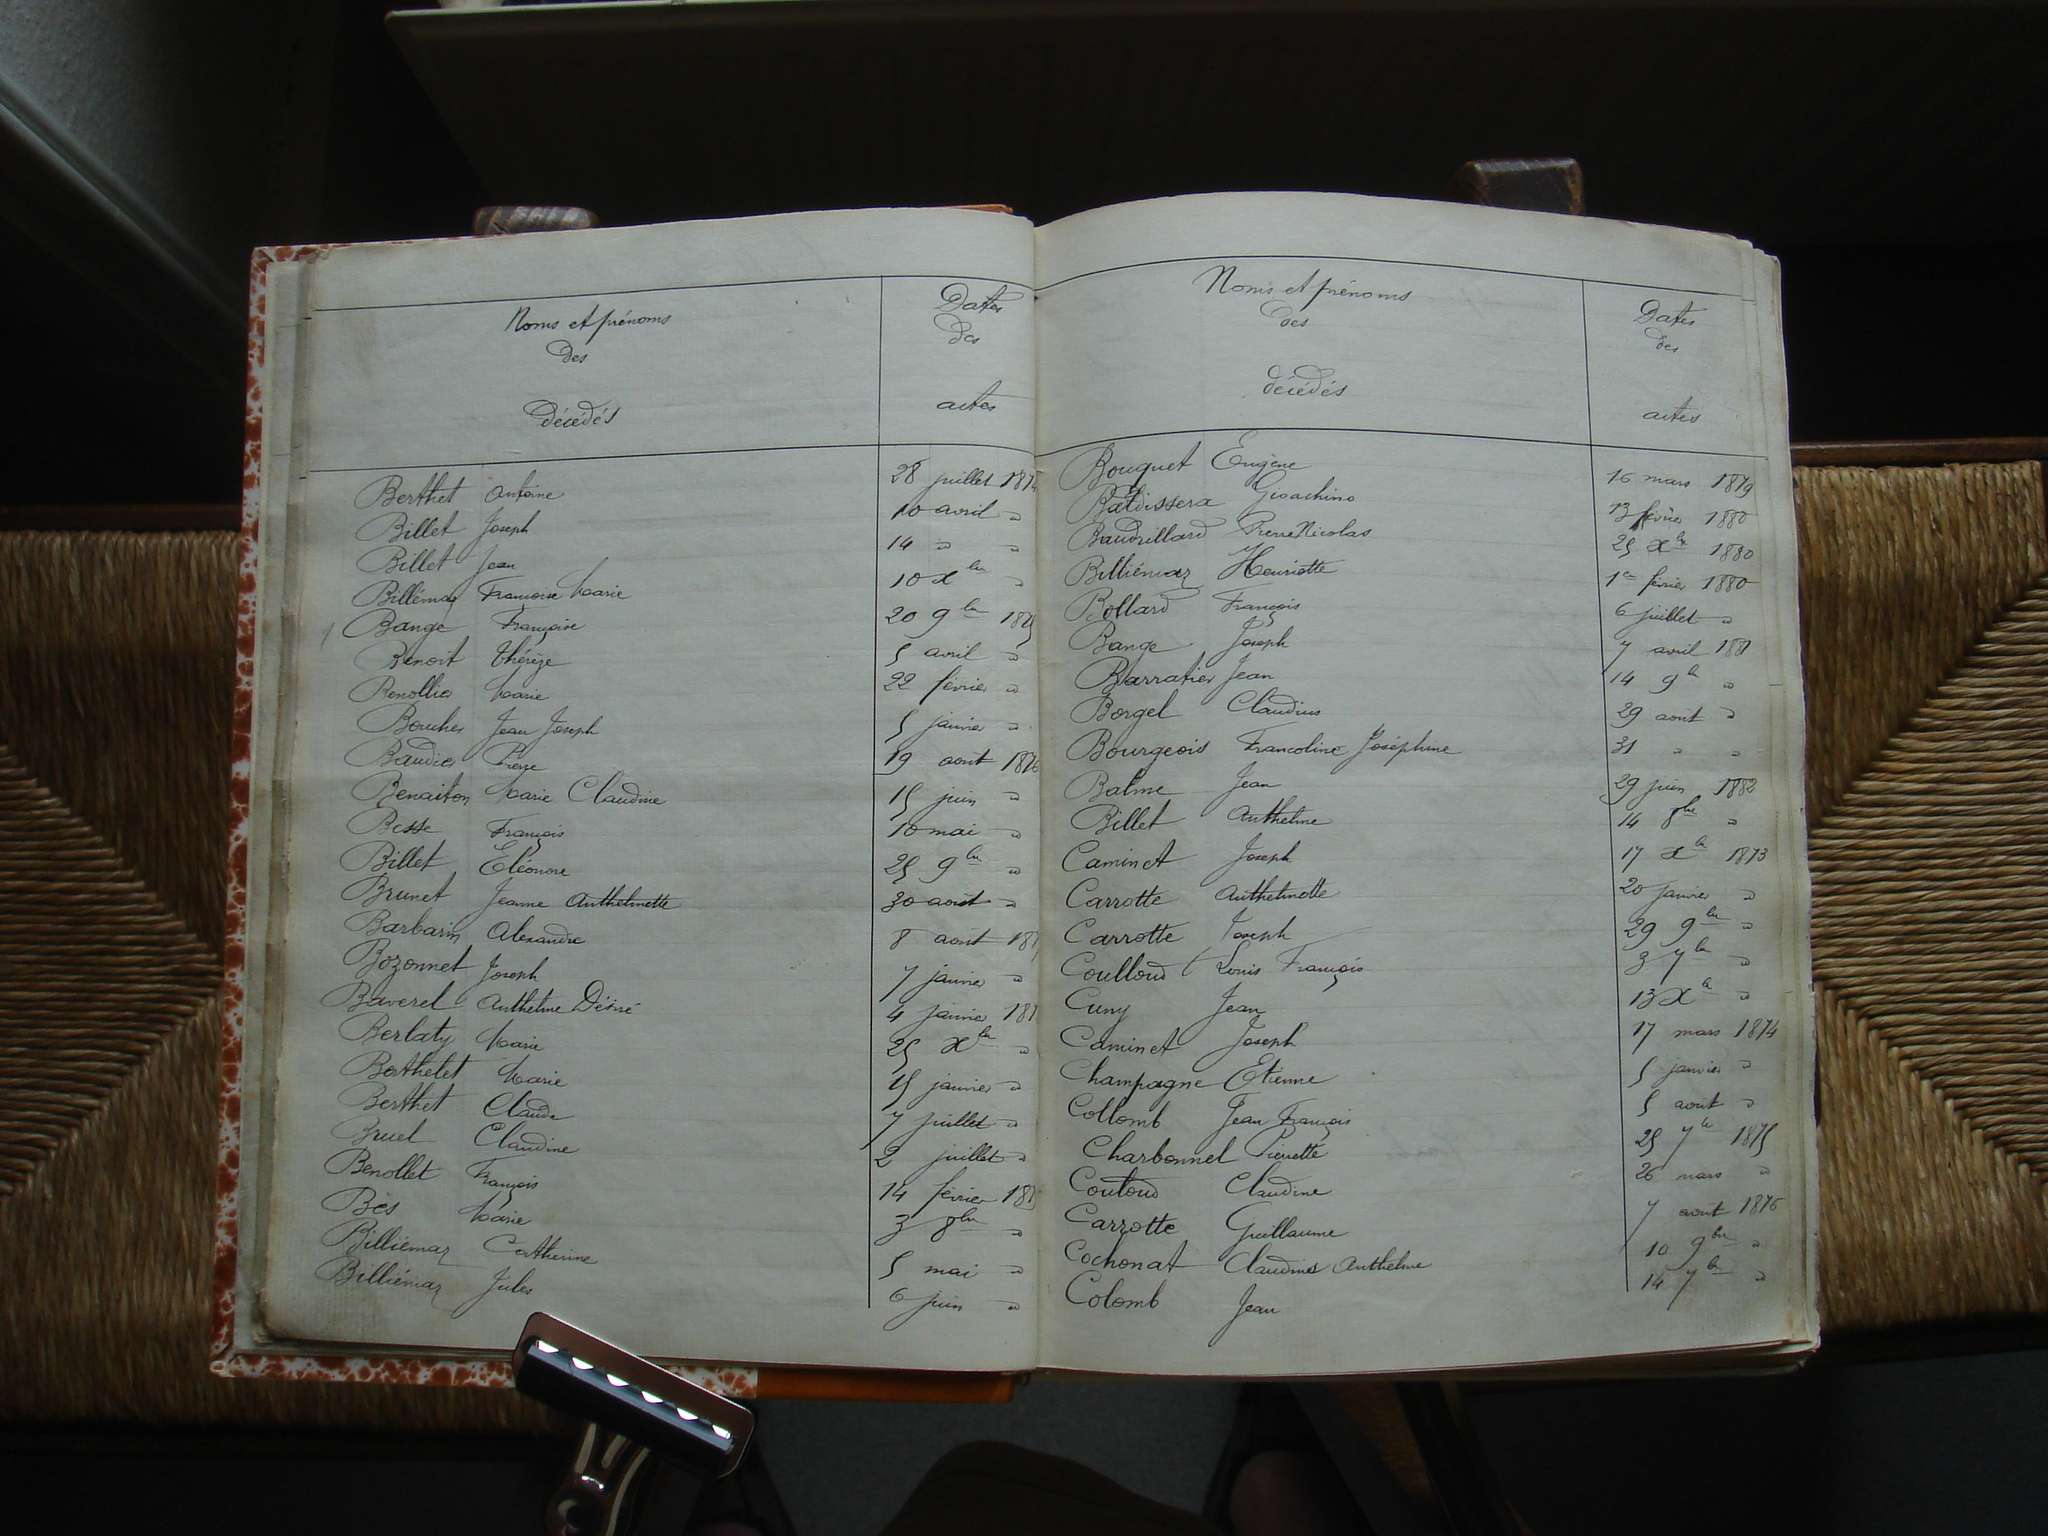 Noms et prénoms
des
décédés
Dates
des
actes
Berthet Antoine 28 juillet 187
Billet Joseph 10 avril "
Billet Jean 14 " "
Billémaz Françoise Marie 10 Xbre "
Bange Françoise 20 9bre 1875
Benoit Thérèze 5 avril "
Benollier Marie 22 février "
Boucher Jean Joseph 5 janvier "
Baudier Pierre 19 août 1876
Benaiton Marie Claudine 15 juin "
Besse François 10 mai "
Billet Eléonore 25 9bre "
Brunet Jeanne Anthelmette 30 août "
Barbarin Alexandre 8 août 187
Bozonnet Joseph 7 janvier "
Baverel Anthelme Désiré 4 janvier 187
Berlaty Marie 25 Xbre "
Berthelet Marie 15 janvier "
Berthet Claude 7 juillet "
Bruel Claudine 2 juillet "
Benollet François 14 février 187
Bès Marie 3 8bre "
Billiémaz Catherine 5 mai "
Billiémaz Jules 6 juin "
Noms et prénoms
des
décédés
Dates
des
actes
Bouquet Eugène 16 mars 1879
Baldissera Gioachino 13 février 1880
Baudrillard Pierre Nicolas 25 Xbre 1880
Billiémaz Henriette 1er février 1880
Bollard François 6 juillet "
Bange Joseph 7 avril 1881
Barratier Jean 14 9bre "
Borgel Claudius 29 août "
Bourgeois Francoline Joséphine 31 " "
Balme Jean 29 juin 1882
Billet Anthelme 14 8bre "
Caminet Joseph 17 Xbre 1873
Carrotte Anthelmette 20 janvier "
Carrotte Joseph 29 9bre "
Coulloud Louis François 3 7bre "
Cuny Jean 13 Xbre "
Caminet Joseph 17 mars 1874
Champagne Etienne 5 janvier "
Collomb Jean François 5 août "
Charbonnel Pierrette 25 7bre 1875
Coutoud Claudine 26 mars "
Carrotte Guillaume 7 août 1876
Cochonat Claudius Anthelme 10 9bre "
Colomb Jean 14 7bre "